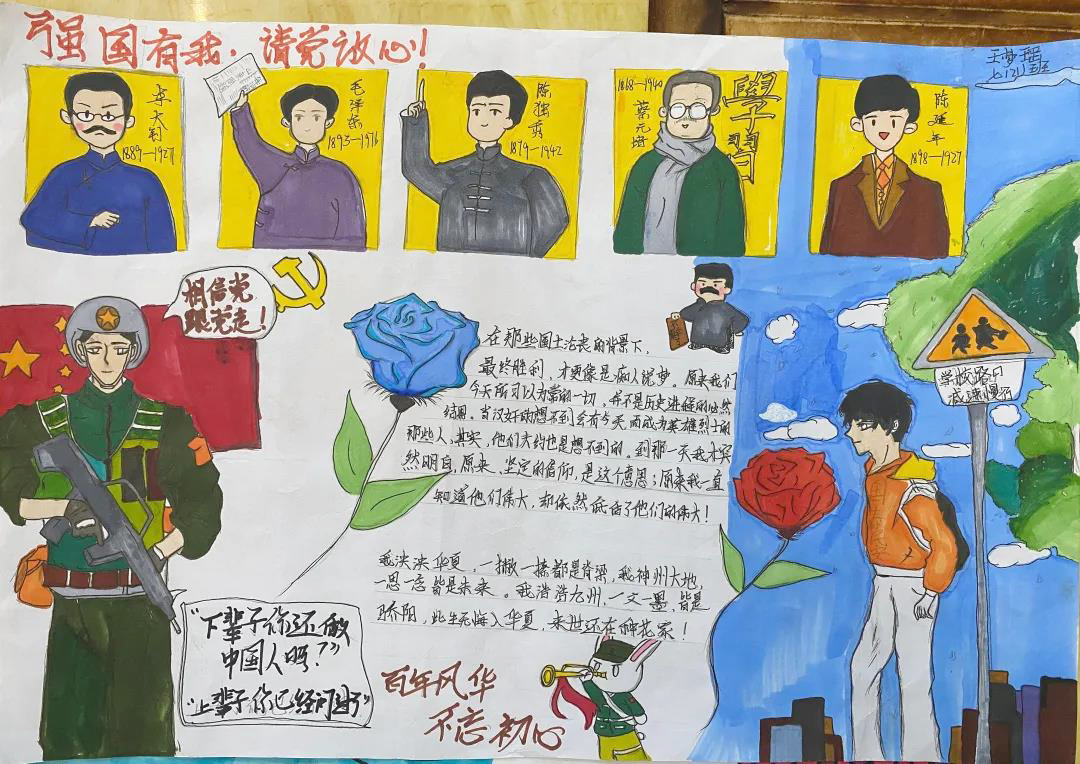 强国有我，请党放心！
王梦瑶
七（12）班
李大钊
1889—1927
毛泽东
1893—1976
陈独秀
1879—1942
1868—1940
蔡元培
學習
陈延年
1898—1927
相信党
跟党走！
在那些国土沦丧的背景下，
最终胜利，才更像是痴人说梦。原来我们
今天所习以为常的一切，并不是历史进程的必然
结果。当汉奸的想不到会有今天，而成为英雄烈士的
那些人，其实，他们大约也是想不到的。到那一天我才突
然明白，原来，坚定的信仰，是这个意思；原来我一直
知道他们伟大，却依然低估了他们的伟大！
我泱泱华夏，一撇一捺都是脊梁，我神州大地，
一思一念皆是未来。我浩浩九州，一文一墨，皆是
骄阳，此生无悔入华夏，来世还在种花家！
学校路口
减速慢行
“下辈子你还做
中国人吗？”
“上辈子你已经问过了”
百年风华
不忘初心